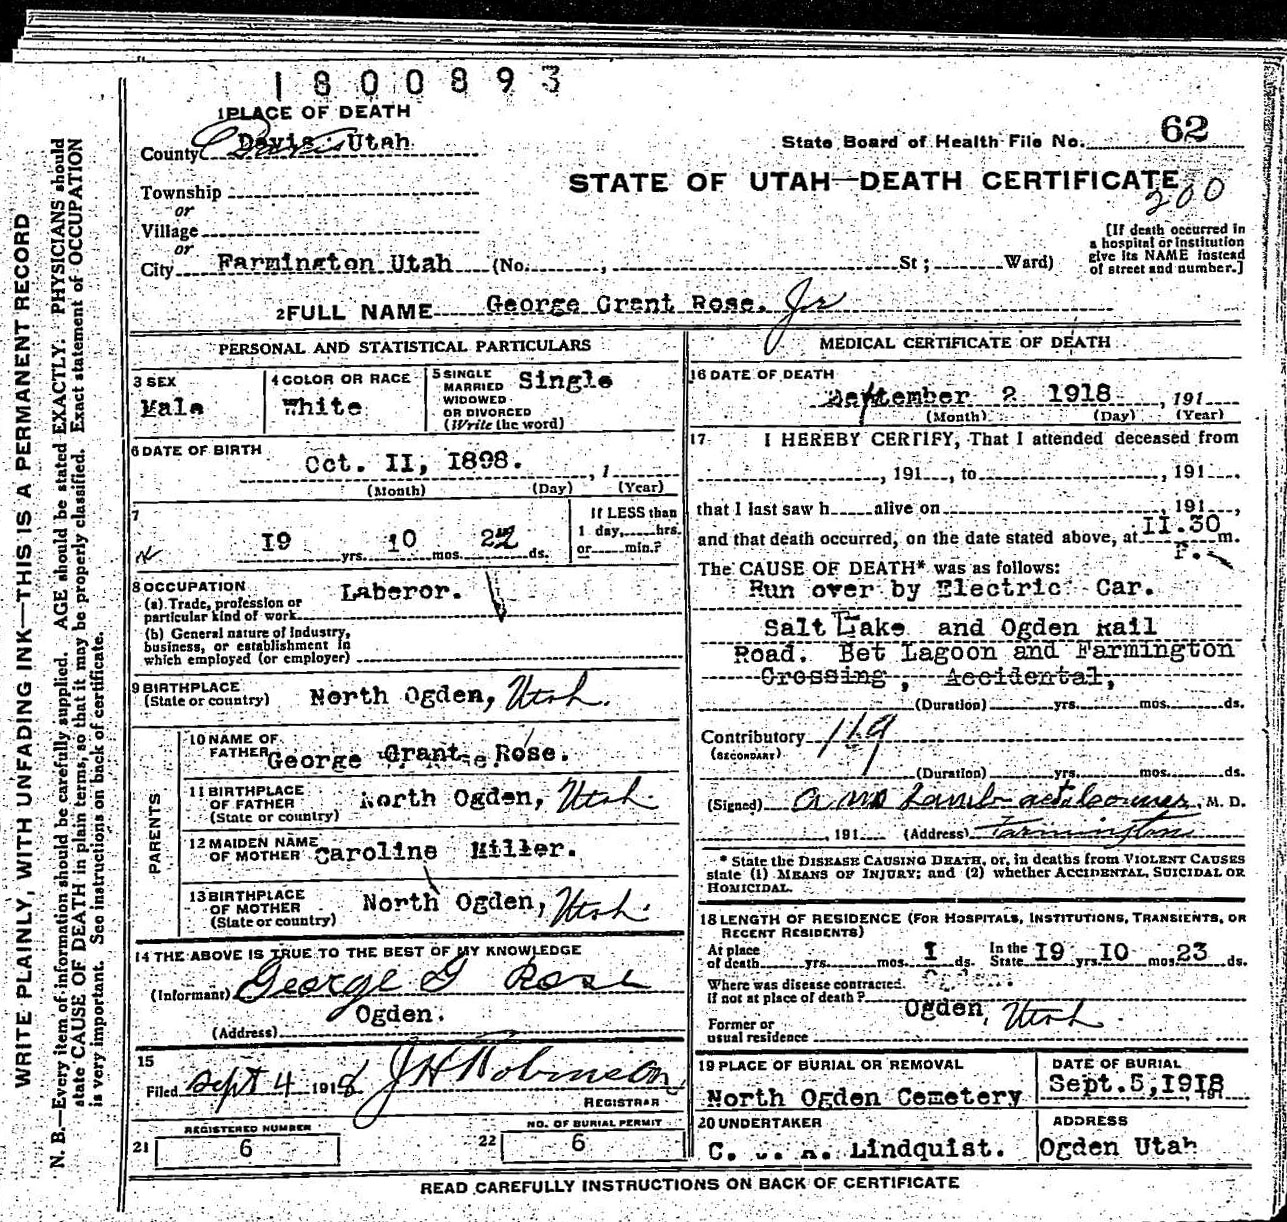 1800893
1 PLACE OF DEATH
County Davis Utah
State Board of Health File No. 62
STATE OF UTAH—DEATH CERTIFICATE
200
Township
or
Village
or
City Farmington Utah (No. , St ; Ward)
[If death occurred in
a hospital or institution
give its NAME instead
of street and number.]
2 FULL NAME George Grant Rose. Jr
PERSONAL AND STATISTICAL PARTICULARS
3 SEX
Male
4 COLOR OR RACE
White
5 SINGLE
MARRIED
WIDOWED
OR DIVORCED
(Write the word)
Single
6 DATE OF BIRTH
Oct. II, I898. , 1
(Month) (Day) (Year)
7
I9 yrs. 10 mos. 22 ds.
If LESS than
1 day, hrs.
or min.?
8 OCCUPATION
(a) Trade, profession or
particular kind of work
Laberor.
(b) General nature of industry,
business, or establishment in
which employed (or employer)
9 BIRTHPLACE
(State or country)
North Ogden, Utah.
PARENTS
10 NAME OF
FATHER
George Grant Rose.
11 BIRTHPLACE
OF FATHER
(State or country)
North Ogden, Utah.
12 MAIDEN NAME
OF MOTHER
Caroline Miller.
13 BIRTHPLACE
OF MOTHER
(State or country)
North Ogden, Utah.
14 THE ABOVE IS TRUE TO THE BEST OF MY KNOWLEDGE
(Informant) George G Rose
(Address) Ogden.
15
Filed Sept 4 1918 J H Robinson
REGISTRAR
21
REGISTERED NUMBER
6
22
NO. OF BURIAL PERMIT
6
MEDICAL CERTIFICATE OF DEATH
16 DATE OF DEATH
September 2 1918 , 191
(Month) (Day) (Year)
17 I HEREBY CERTIFY, That I attended deceased from
, 191 , to , 191 ,
that I last saw h alive on , 191 ,
and that death occurred, on the date stated above, at II.30 P. m.
The CAUSE OF DEATH* was as follows:
Run over by Electric Car.
Salt Lake and Ogden Rail
Road. Bet Lagoon and Farmington
Crossing, Accidental,
(Duration) yrs. mos. ds.
Contributory 119
(SECONDARY)
(Duration) yrs. mos. ds.
(Signed) Lamb , M. D.
, 191 (Address) Farmington
* State the DISEASE CAUSING DEATH, or, in deaths from VIOLENT CAUSES
state (1) MEANS OF INJURY; and (2) whether ACCIDENTAL, SUICIDAL OR
HOMICIDAL.
18 LENGTH OF RESIDENCE (FOR HOSPITALS, INSTITUTIONS, TRANSIENTS, OR
RECENT RESIDENTS)
At place
of death yrs. mos. I ds.
In the
State I9 yrs. 10 mos. 23 ds.
Where was disease contracted.
if not at place of death?
Former or
usual residence
Ogden, Utah.
19 PLACE OF BURIAL OR REMOVAL
North Ogden Cemetery
DATE OF BURIAL
Sept. 5, 1918 , 191
20 UNDERTAKER
C. J. A. Lindquist.
ADDRESS
Ogden Utah
READ CAREFULLY INSTRUCTIONS ON BACK OF CERTIFICATE
WRITE PLAINLY, WITH UNFADING INK—THIS IS A PERMANENT RECORD
N. B.—Every item of information should be carefully supplied. AGE should be stated EXACTLY. PHYSICIANS should
state CAUSE OF DEATH in plain terms, so that it may be properly classified. Exact statement of OCCUPATION
is very important. See instructions on back of certificate.